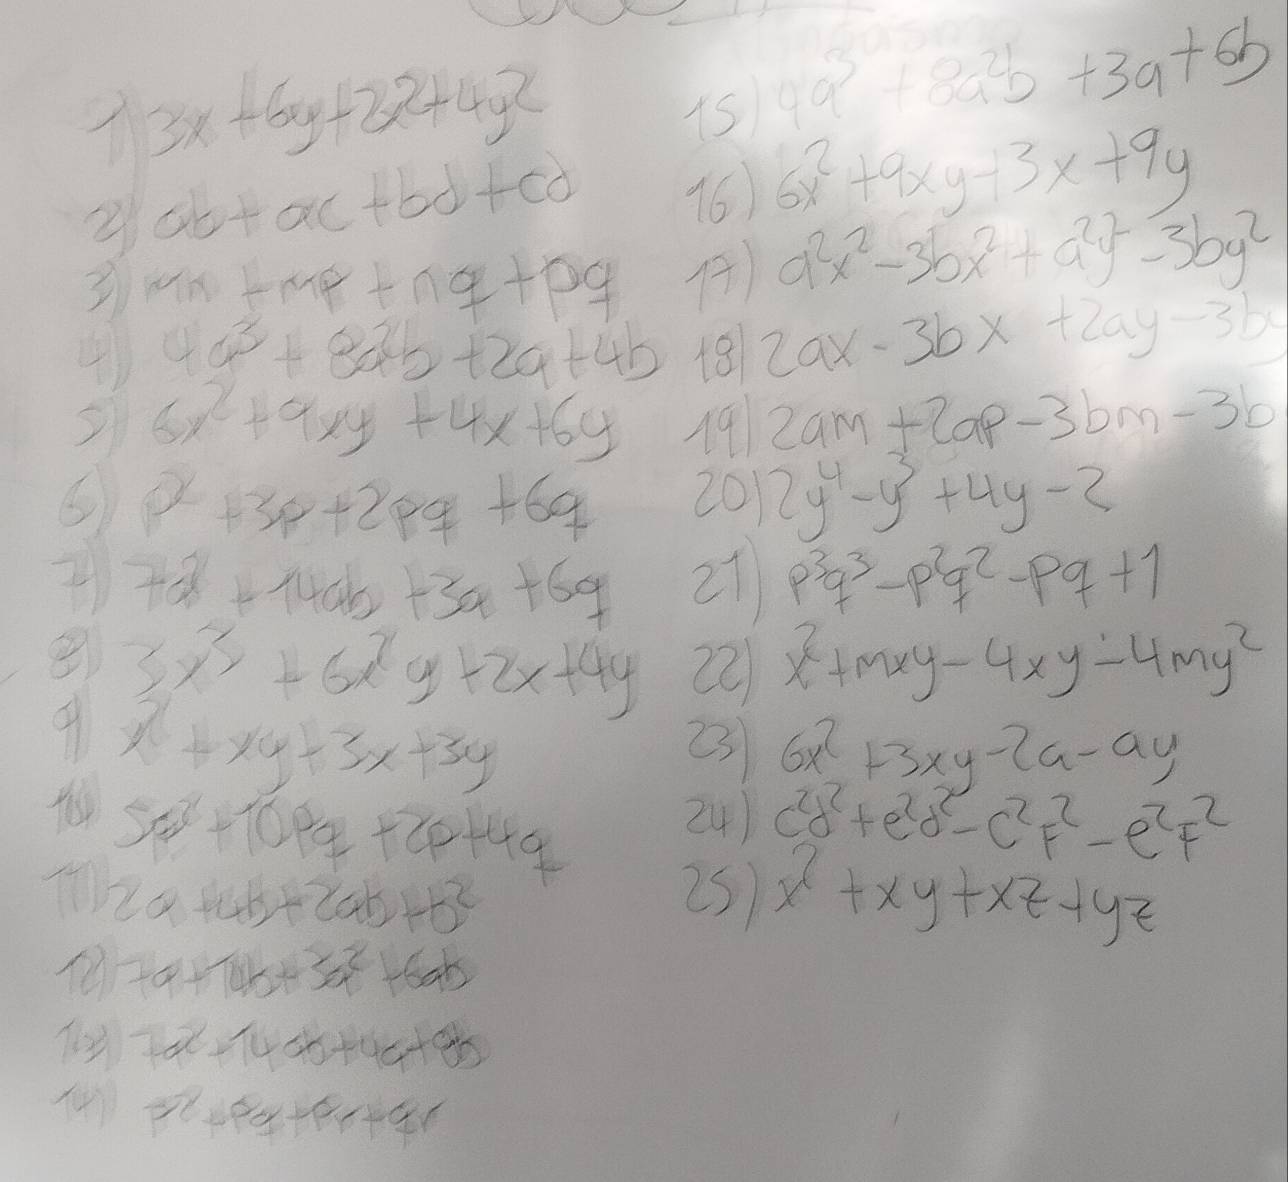 1) 3x+6y+2x²+4y²
2) ab+ac+bd+cd
3) mn+mp+nq+pq
4) 4a³+8a²b+2a+4b
5) 6x²+9xy+4x+6y
6) p²+3p+2pq+6q
7) 7a²+14ab+3a+6q
8) 3x³+6x²y+2x+4y
9) x²+xy+3x+3y
10) 5p²+10pq+2p+4q
11) 2a+4b+2ab+b²
12) 7a+14b+3a²+6ab
13) 7a²+14ab+4a+8b
14) p²+pq+pr+qr
15) 4a³+8a²b+3a+6b
16) 6x²+9xy+3x+9y
17) a²x²-3bx²+a²y²-3by²
18) 2ax-3bx+2ay-3by
19) 2am+2ap-3bm-3b
20) 2y⁴-y³+4y-2
21) p³q³-p²q²-pq+1
22) x²+mxy-4xy-4my²
23) 6x²+3xy-2a-ay
24) c²d²+e²d²-c²F²-e²F²
25) x²+xy+xz+yz